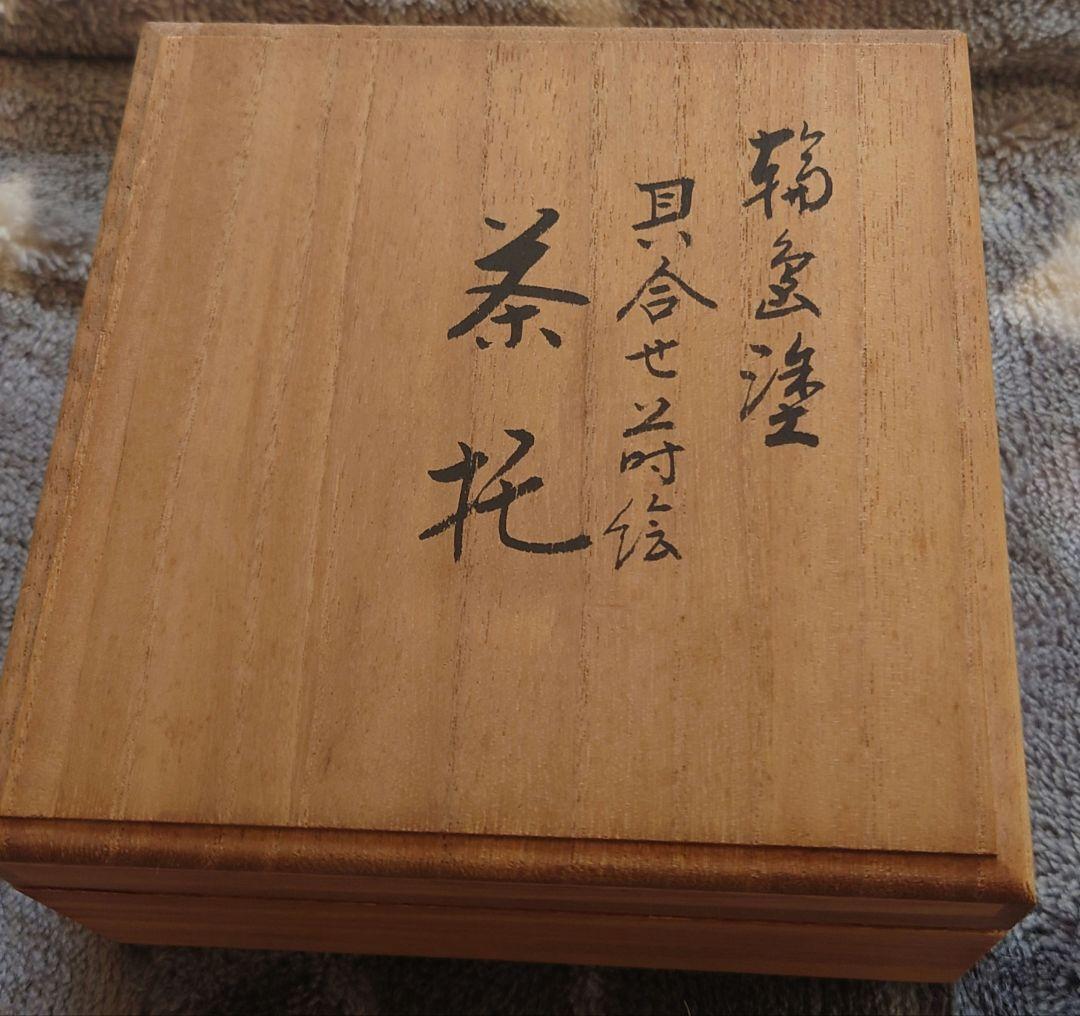 輪島塗
貝合せ蒔絵
茶托